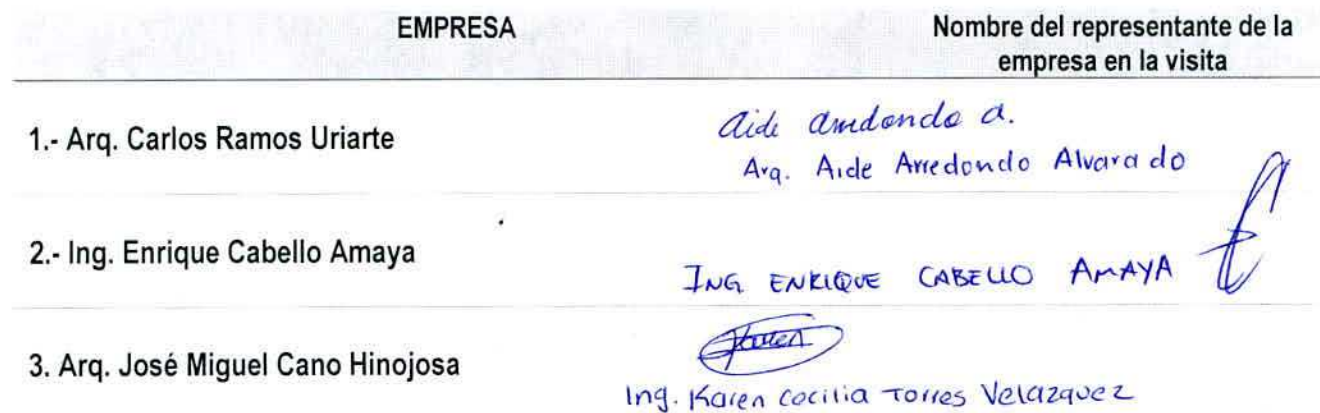 EMPRESA
Nombre del representante de la
empresa en la visita
1.- Arq. Carlos Ramos Uriarte
Aide Arredondo A.
Arq. Aide Arredondo Alvarado
2.- Ing. Enrique Cabello Amaya
ING ENRIQUE CABELLO AMAYA
3. Arq. José Miguel Cano Hinojosa
Karen
Ing. Karen Cecilia Torres Velazquez